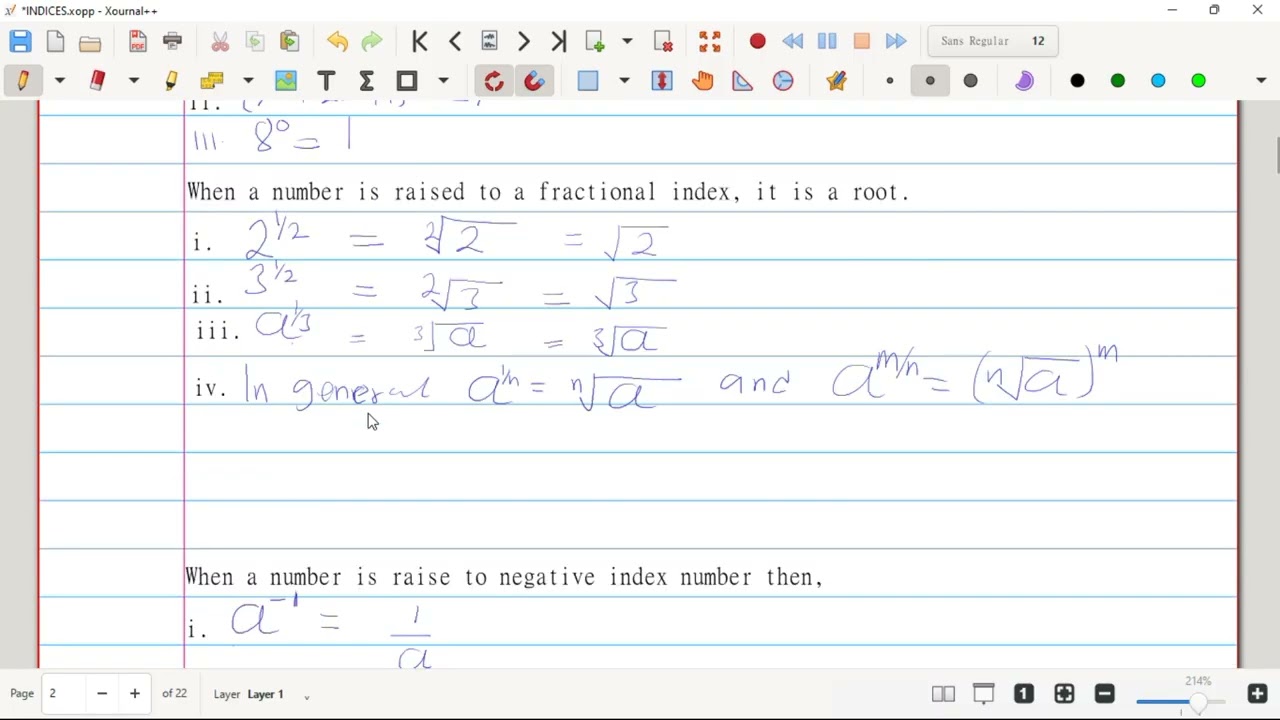 *INDICES.xopp - Xournal++
Sans Regular 12
ii.
III. 8⁰ = 1
When a number is raised to a fractional index, it is a root.
i. 2^1/2 = ²√2 = √2
ii. 3^1/2 = ²√3 = √3
iii. a^1/3 = ³√a = ³√a
iv. In general a^1/n = ⁿ√a and a^m/n = (ⁿ√a)^m
When a number is raise to negative index number then,
i. a^-1 = 1/a
Page 2 of 22 Layer Layer 1 214%